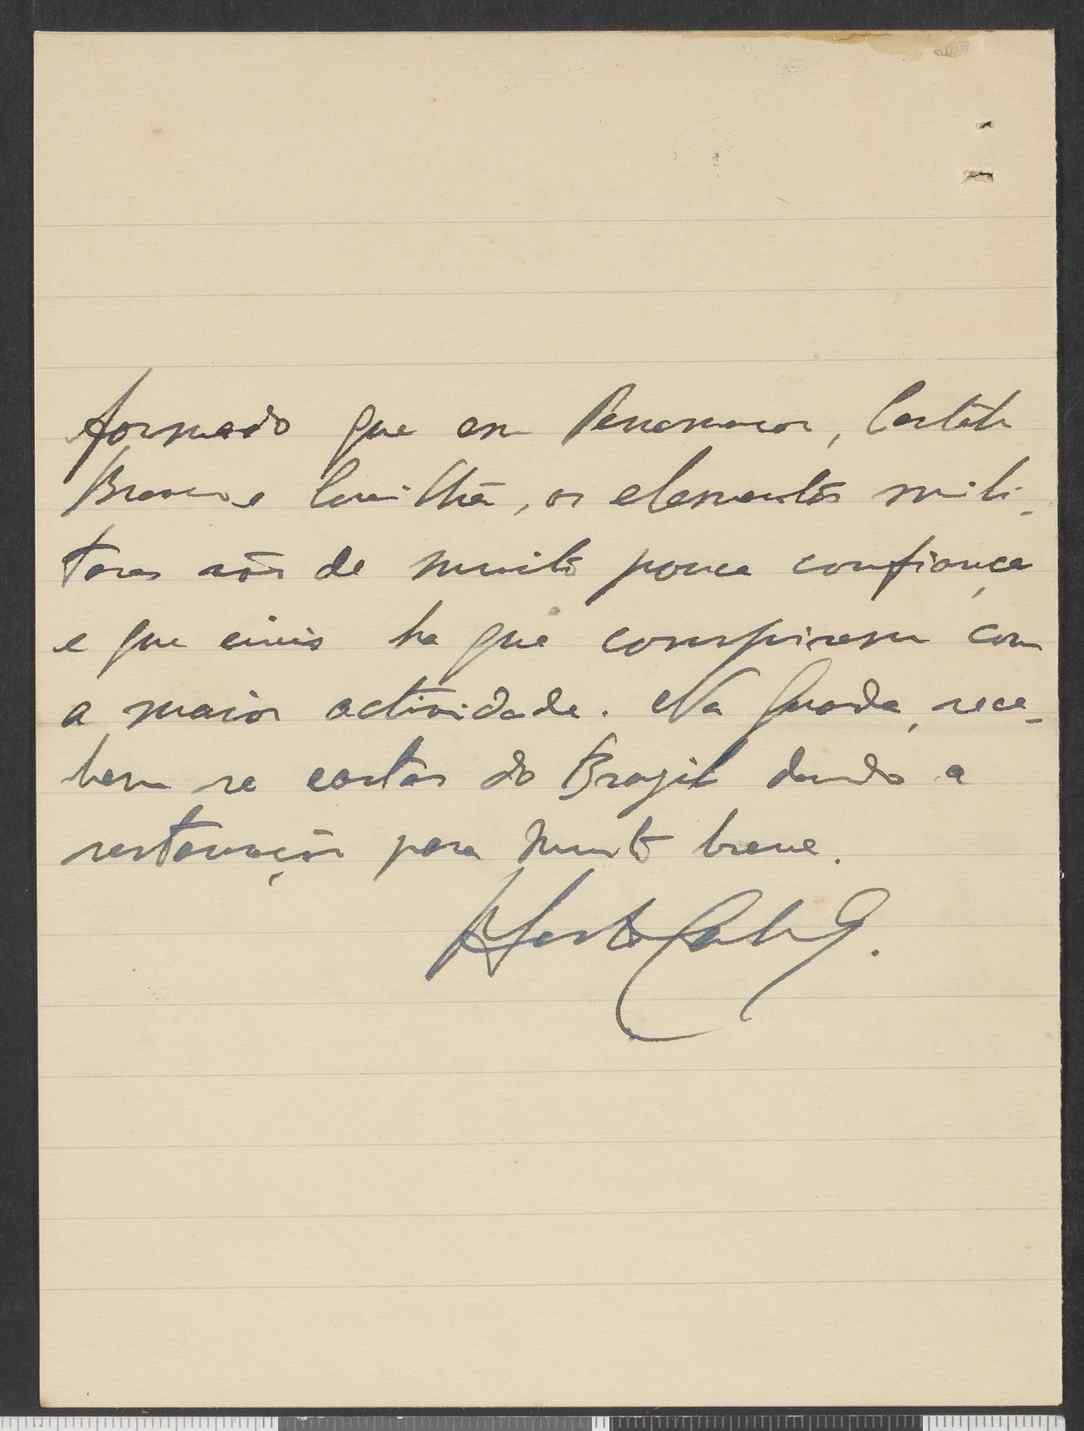 formado que em Penamacor, Castelo
Branco e Covilhã, os elementos mili-
tares são de muito pouca confiança
e que civis ha que conspiram com
a maior actividade. Na Guarda, rece-
bem se cartas do Brazil dando a
restauração para muito breve.